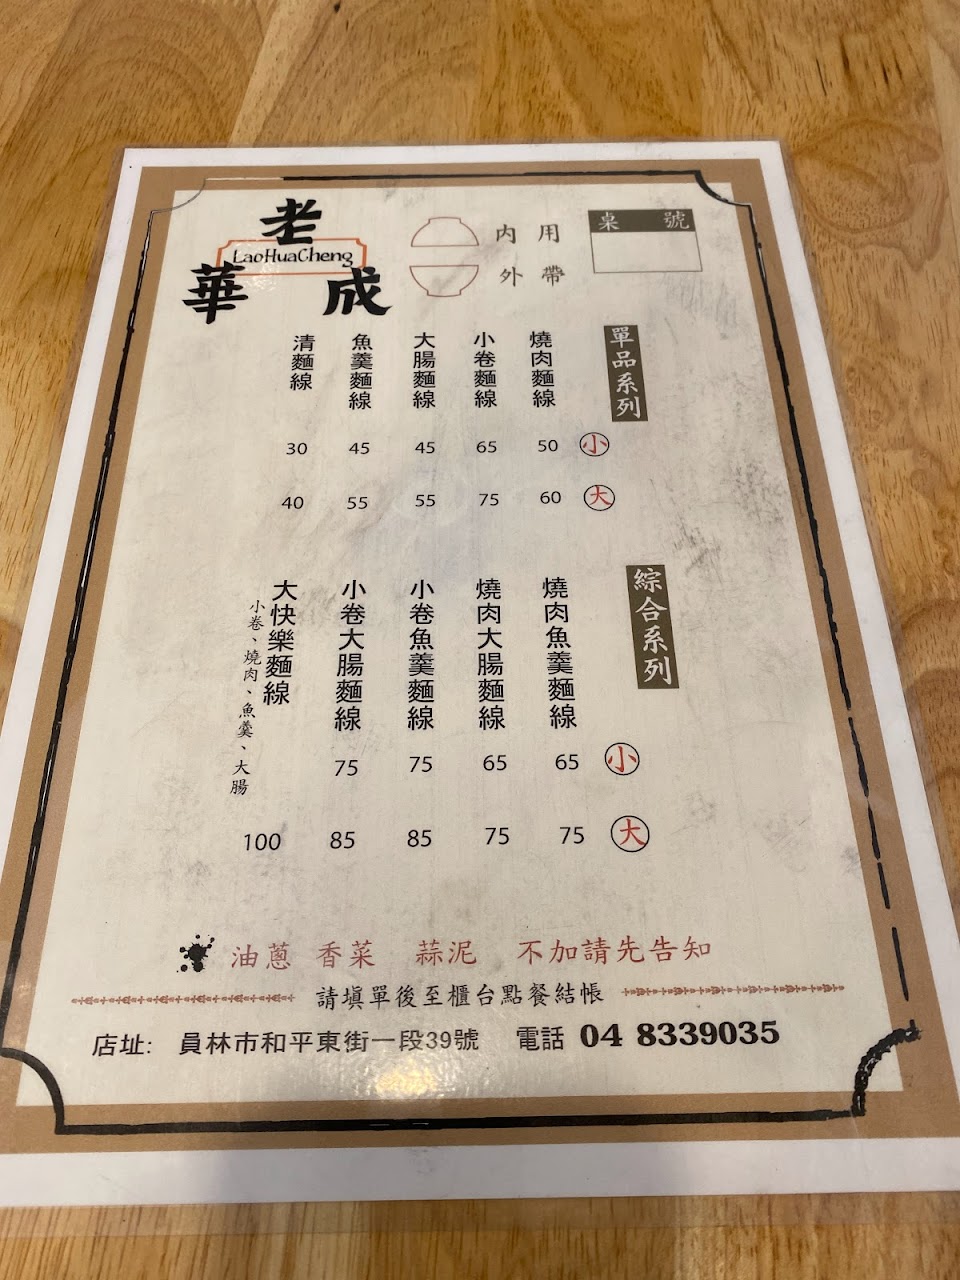 老華成
LaoHuaCheng
內用
外帶
桌號
單品系列
小
大
燒肉麵線
50
60
小卷麵線
65
75
大腸麵線
45
55
魚羹麵線
45
55
清麵線
30
40
綜合系列
小
大
燒肉魚羹麵線
65
75
燒肉大腸麵線
65
75
小卷魚羹麵線
75
85
小卷大腸麵線
75
85
大快樂麵線
小卷、燒肉、魚羹、大腸
100
油蔥 香菜 蒜泥 不加請先告知
請填單後至櫃台點餐結帳
店址: 員林市和平東街一段39號 電話 04 8339035